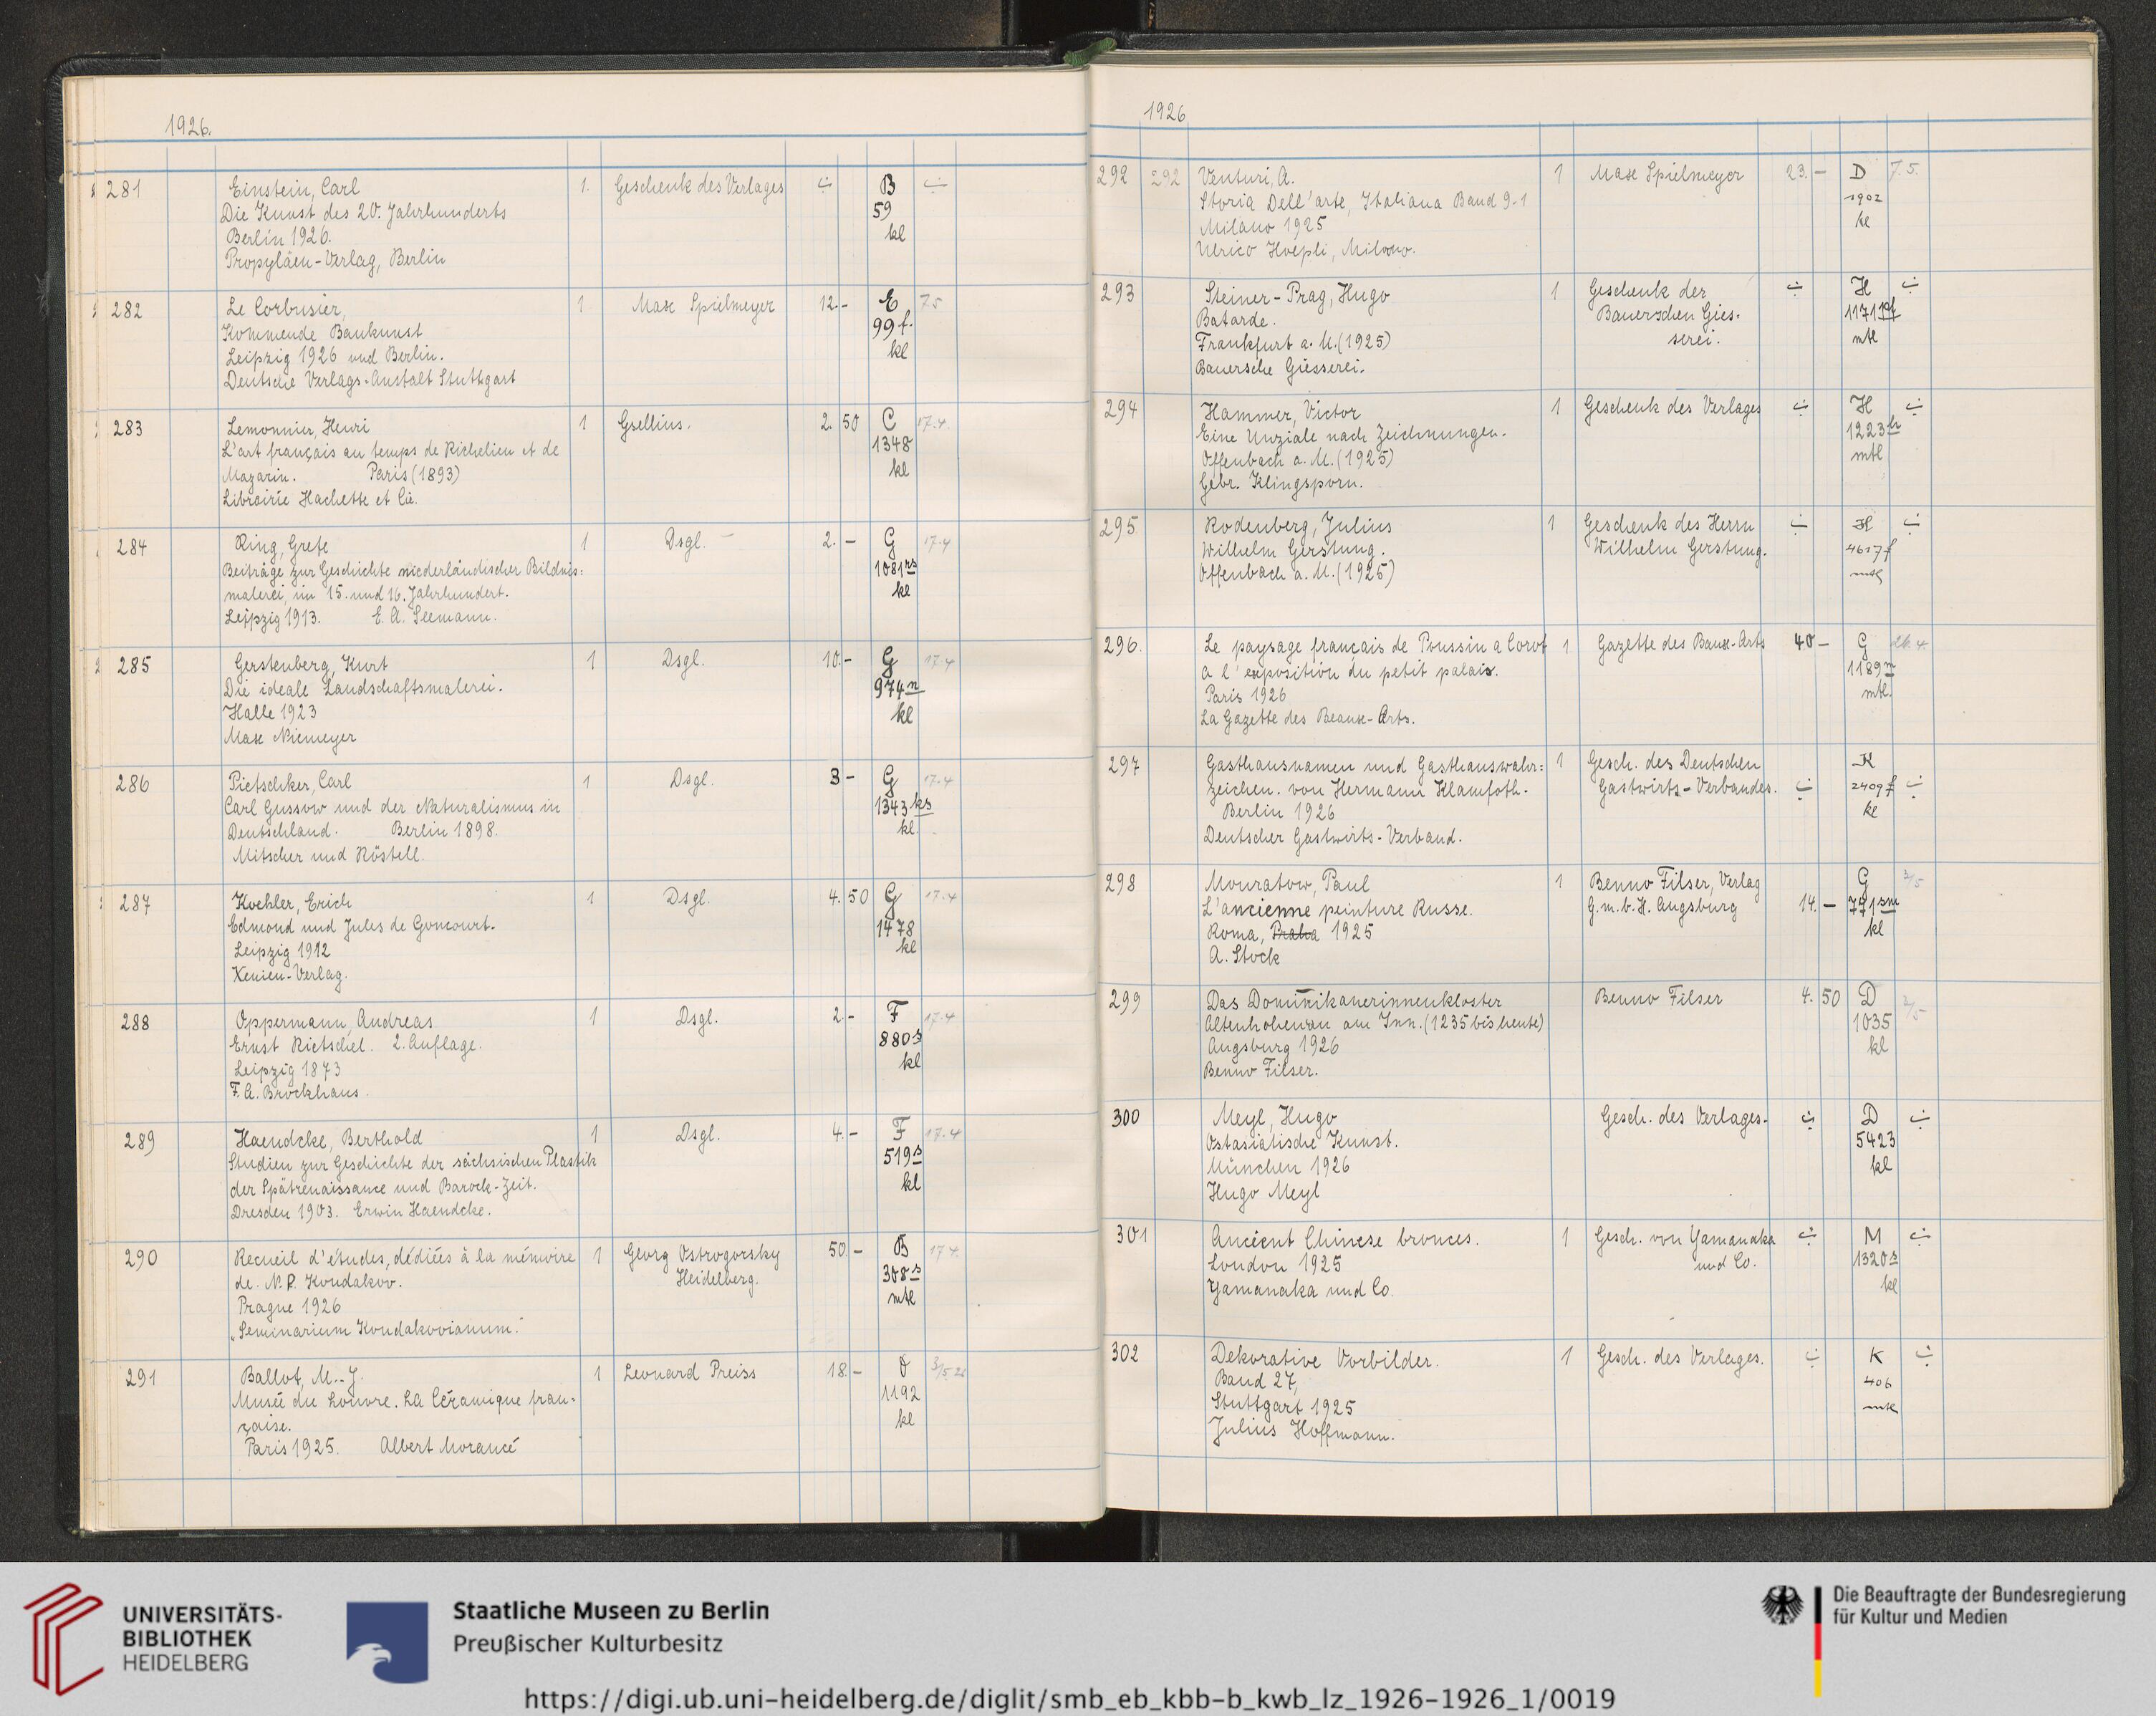 1926.
281 Einstein, Carl 1. Geschenk des Verlages ÷ B ÷
Die Kunst des 20. Jahrhunderts 59
Berlin 1926. kl
Propyläen-Verlag, Berlin
282 Le Corbusier, 1 Max Spielmeyer 12.- E 7.5
Kommende Baukunst 99 f.
Leipzig 1926 und Berlin. kl
Deutsche Verlags-Anstalt Stuttgart
283 Lemonnier, Henri 1 Gsellius. 2. 50 C 17.4.
L'art français au temps de Richelieu et de 1348
Mazarin. Paris (1893) kl
Librairie Hachette et Cie.
284 Ring, Grete 1 Dsgl. 2. - G 17.4
Beiträge zur Geschichte niederländischer Bildnis= 1081 rs
malerei, im 15. und 16. Jahrhundert. kl
Leipzig 1913. E. A. Seemann.
285 Gerstenberg, Kurt 1 Dsgl. 10.- G 17.4
Die ideale Landschaftsmalerei. 974 n
Halle 1923 kl
Max Niemeyer
286 Pietschker, Carl 1 Dsgl. 3 - G 17.4
Carl Gussow und der Naturalismus in 1343 ks
Deutschland. Berlin 1898. kl
Mitscher und Röstell.
287 Koehler, Erich 1 Dsgl. 4. 50 G 17.4
Edmond und Jules de Goncourt. 1478
Leipzig 1912 kl
Xenien-Verlag.
288 Oppermann, Andreas 1 Dsgl. 2.- F 17.4
Ernst Rietschel. 2. Auflage. 880 s
Leipzig 1873 kl
F. A. Brockhaus.
289 Haendcke, Berthold 1 Dsgl. 4.- F 17.4
Studien zur Geschichte der sächsischen Plastik 519 s
der Spätrenaissance und Barock-Zeit. kl
Dresden 1903. Erwin Haendcke.
290 Recueil d'études, dédiées à la mémoire 1 Georg Ostrogorsky 50.- B 17.4.
de N. P. Kondakov. Heidelberg. 308 s
Prague 1926 mtl
"Seminarium Kondakovianum."
291 Ballot, M.-J. 1 Leonard Preiss 18.- 3/5 26
Musée du Louvre. La Céramique fran- 1192
çaise. kl
Paris 1925. Albert Morancé
1926
292 292 Venturi, A. 1 Max Spielmeyer 23. - D 7.5.
Storia Dell'arte, Italiana Band 9.1 1902
Milano 1925 kl
Ulrico Hoepli, Milano.
293 Steiner-Prag, Hugo 1 Geschenk der ÷ H ÷
Batarde. Bauerschen Gies- 1171
Frankfurt a. M. (1925) serei. mtl
Bauersche Giesserei.
294 Hammer, Victor 1 Geschenk des Verlages ÷ H ÷
Eine Unziale nach Zeichnungen. 1223
Offenbach a. M. (1925) mtl
Gebr. Klingsporn.
295 Rodenberg, Julius 1 Geschenk des Herrn ÷ H ÷
Wilhelm Gerstung. Wilhelm Gerstung. 4617 f
Offenbach a. M. (1925) mtl
296. Le paysage français de Poussin a Corot 1 Gazette des Baux-Arts 40 - G 26.4
a l'exposition du petit palais. 1189 n
Paris 1926 mtl.
La Gazette des Beaux-Arts.
297 Gasthausnamen und Gasthauswahr= 1 Gesch. des Deutschen K
zeichen. von Hermann Klamfoth. Gastwirts-Verbandes. ÷ 2409 f ÷
Berlin 1926 kl
Deutscher Gastwirts-Verband.
298 Mouratow, Paul 1 Benno Filser, Verlag G 3/5
L'ancienne peinture Russe. G.m.b.H. Augsburg 14. - 791 sm
Roma, Praha 1925 kl
A. Stock
299 Das Dominikanerinnenkloster Benno Filser 4. 50 D 3/5
Altenhohenau am Inn. (1235 bis heute) 1035
Augsburg 1926 kl
Benno Filser.
300 Meyl, Hugo Gesch. des Verlages. ÷ D ÷
Ostasiatische Kunst. 5423
München 1926 kl
Hugo Meyl
301 Ancient Chinese bronces. 1 Gesch. von Yamanaka ÷ M ÷
London 1925 und Co. 1320 s
Yamanaka und Co. kl
302 Dekorative Vorbilder. 1 Gesch. des Verlages. ÷ K ÷
Band 27, 406
Stuttgart 1925 mtl
Julius Hoffmann.
UNIVERSITÄTS-
BIBLIOTHEK
HEIDELBERG
Staatliche Museen zu Berlin
Preußischer Kulturbesitz
Die Beauftragte der Bundesregierung
für Kultur und Medien
https://digi.ub.uni-heidelberg.de/diglit/smb_eb_kbb-b_kwb_lz_1926-1926_1/0019